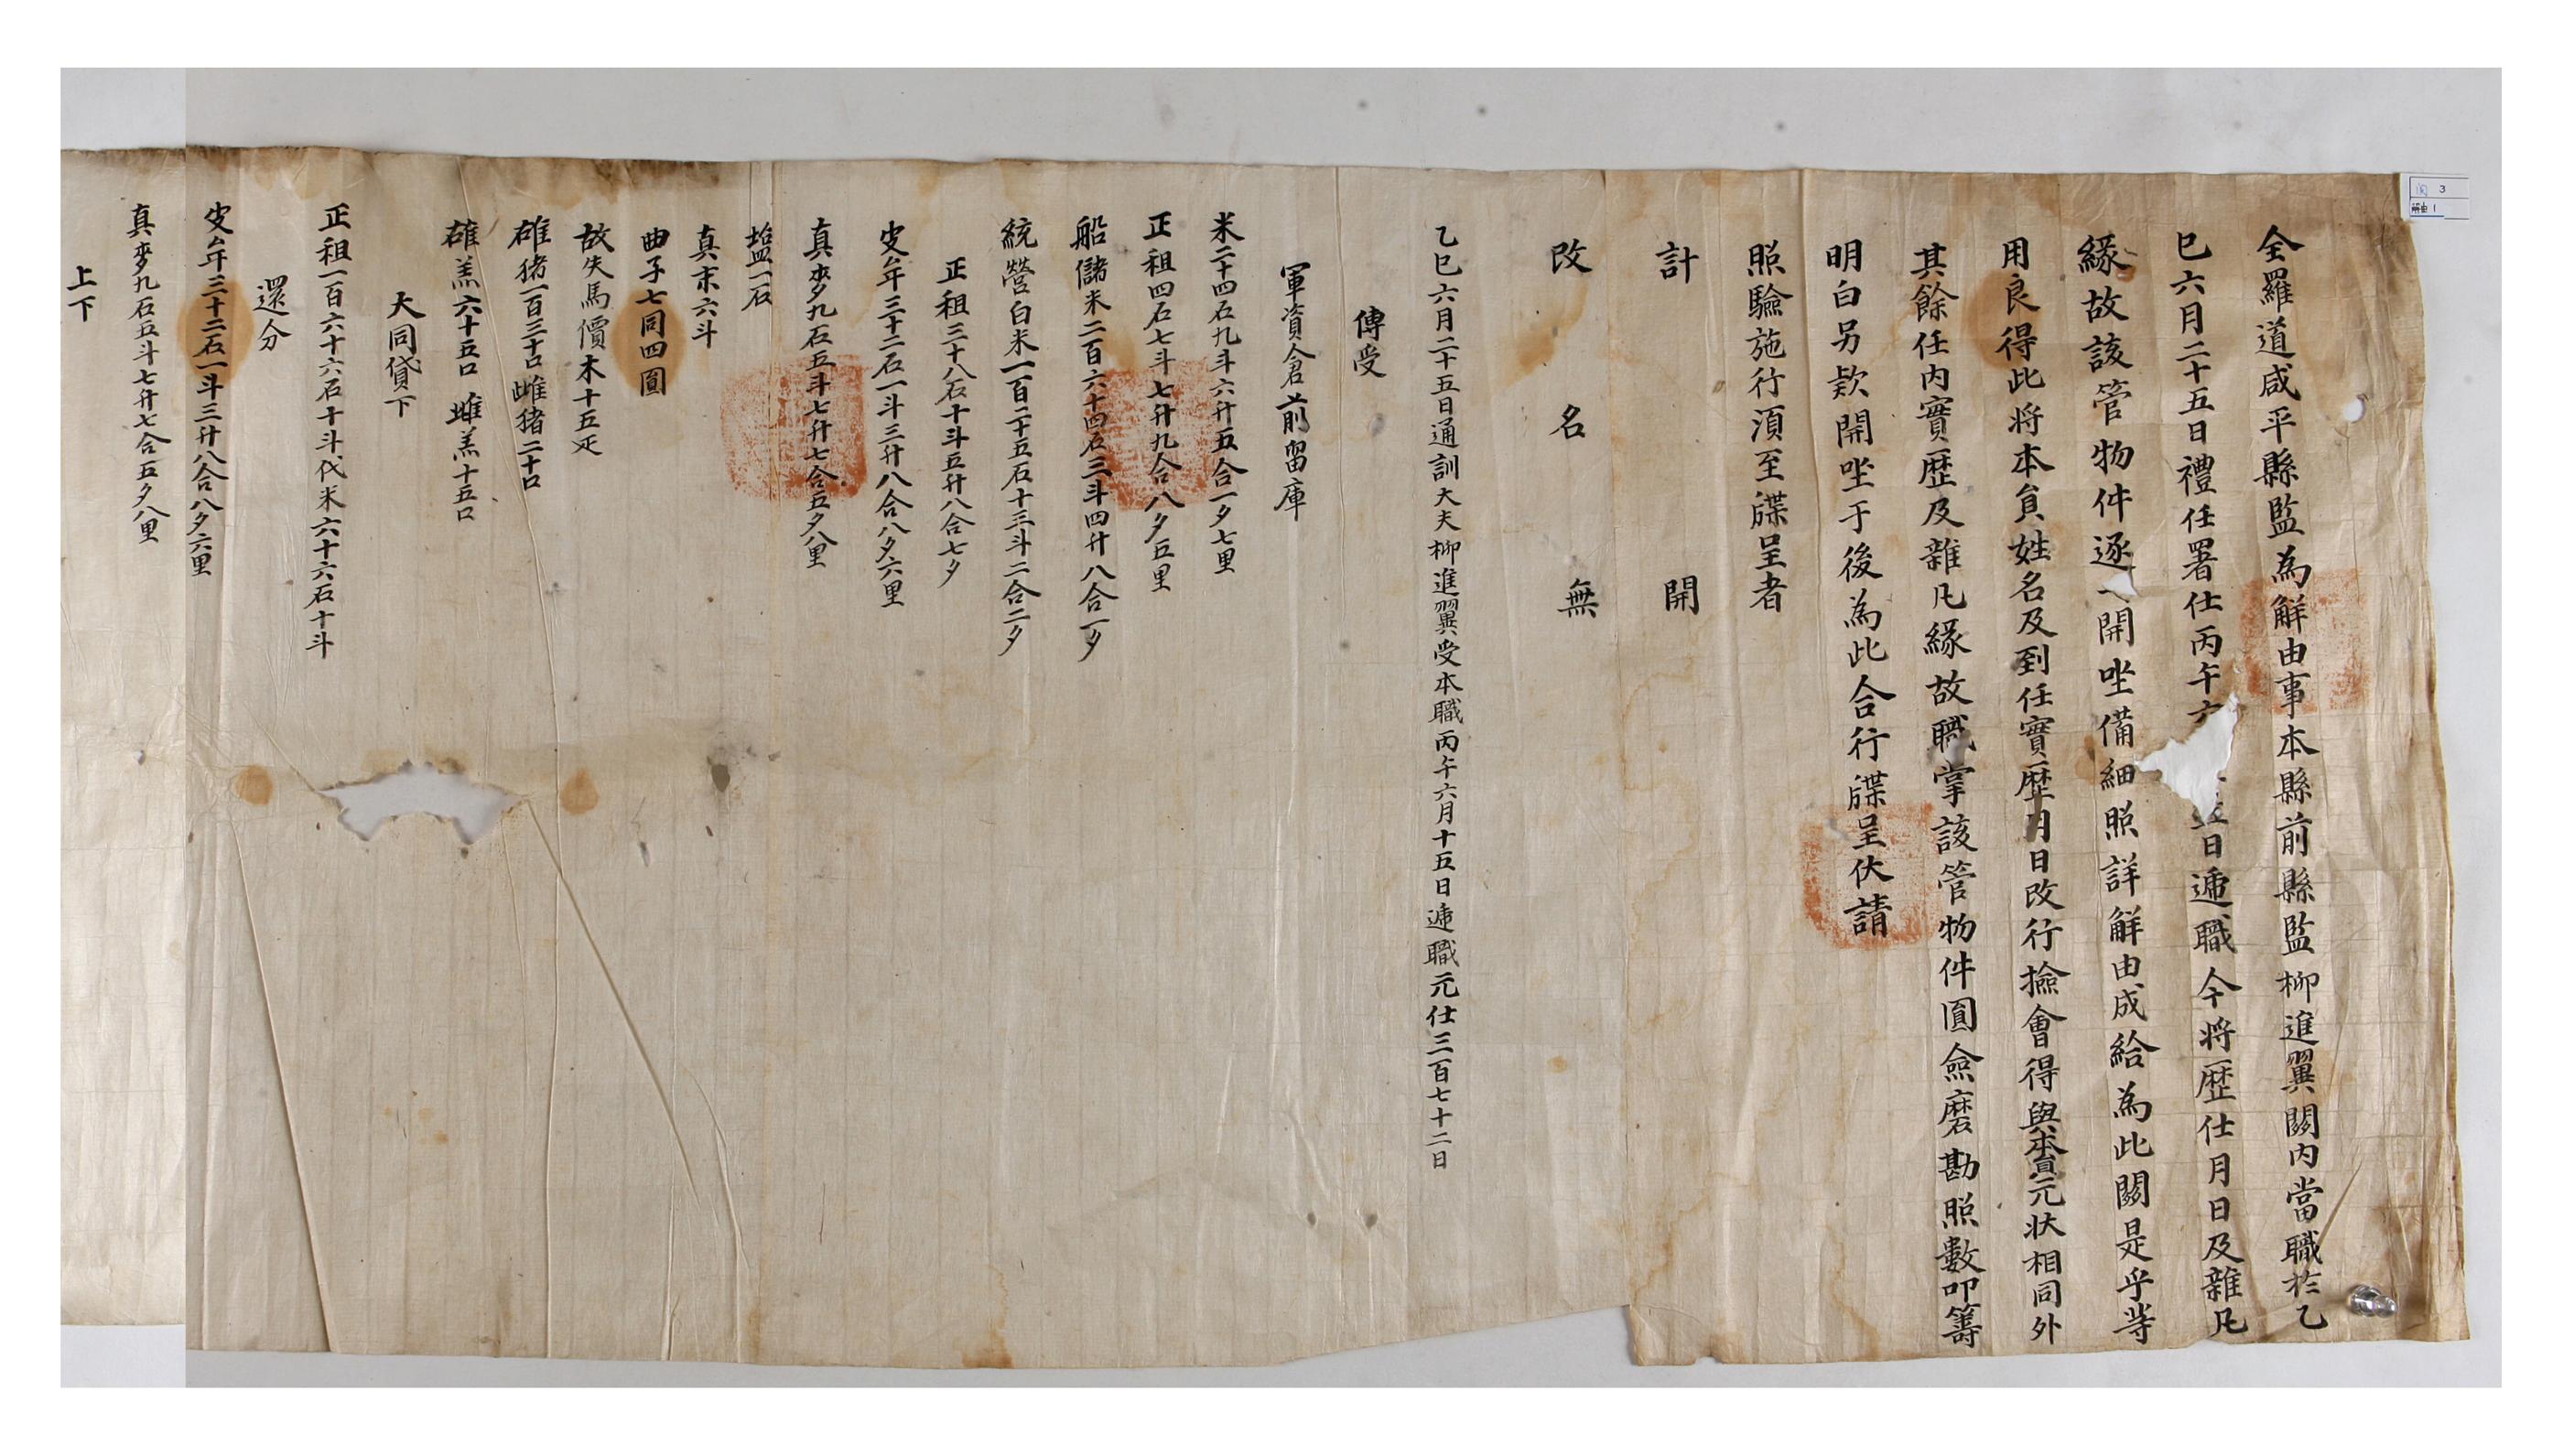 全羅道咸平縣監為解由事本縣前縣監柳進翼關內當職於乙
巳六月二十五日禮任署仕丙午六五日遞職今將歷仕月日及雜凡
緣故該管物件逐一開坐備細照詳解由成給為此關是乎等
用良得此將本員姓名及到任實歷月日改行撿會得與本員元狀相同外
其餘任內實歷及雜凡緣故職掌該管物件圓僉磨勘照數印籌
明白另款開坐于後為此合行牒呈伏請
照驗施行湏至牒呈者
計開
改名無
乙巳六月二十五日通訓大夫柳進翼受本職丙午六月十五日遞職元仕三百七十二日
傳受
軍資倉前留庫
米二十四石九斗六升五合一夕七里
正租四石七斗七升九合八夕五里
船儲米二百六十四石三斗四升八合一夕
統營白米一百二十五石十三斗二合二夕
正租三十八石十斗五升八合七夕
皮牟三十二石一斗三升八合八夕六里
真麥九石五斗七升七合五夕八里
塩一石
真末六斗
曲子七同四圓
故失馬價木十五疋
雄猪一百三十口雌猪二十口
雄羔六十五口雌羔十五口
大同貸下
正租一百六十六石十斗代米六十六石十斗
還分
皮牟三十二石一斗三升八合八夕六里
真麥九石五斗七升七合五夕八里
上下
3